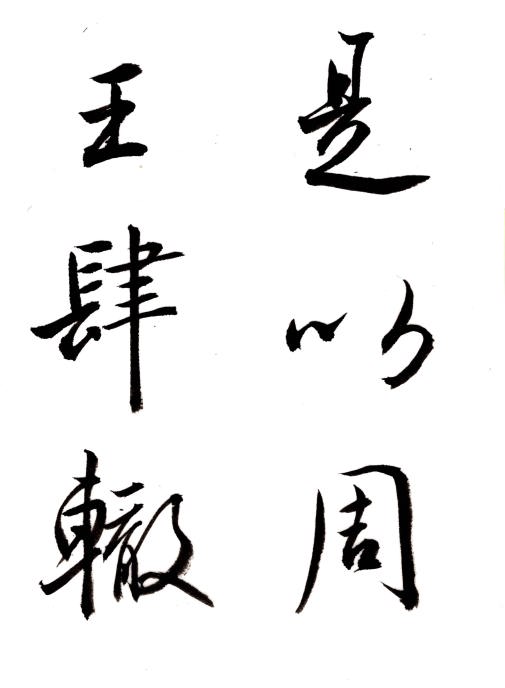 是以周
王肆轍